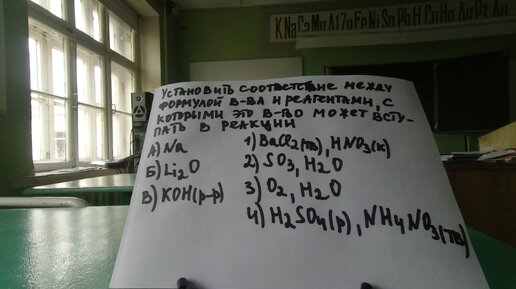 K Na Ca Mg Al Zn Fe Ni Sn Pb H Cu Hg Ag Pt Au
УСТАНОВИТЬ СООТВЕТСТВИЕ МЕЖДУ
ФОРМУЛОЙ В-ВА И РЕАГЕНТАМИ, С
КОТОРЫМИ ЭТО В-ВО МОЖЕТ ВСТУ-
ПАТЬ В РЕАКЦИИ
А) Na
Б) Li2O
В) KOH(р-р)
1) BaCl2(тв), HNO3(к)
2) SO3, H2O
3) O2, H2O
4) H2SO4(р), NH4NO3(тв)